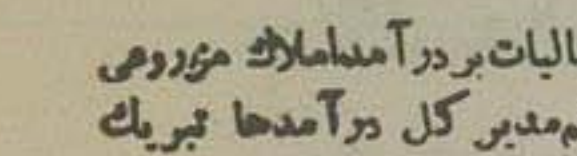 الیات بر درآمد املاک مزروعی
م مدیر کل درآمدها تبریک